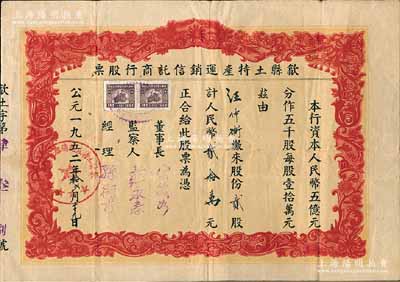 歙縣土特產運銷信託商行股票
本行資本人民幣五億元
分作五千股每股壹拾萬元
茲由
汪仲衡繳來股份貳股
計人民幣貳拾萬元
正合給此股票為憑
董事長
監察人
經理
公元一九五二年
月
日
歙土字第
號
上海陽明拍賣